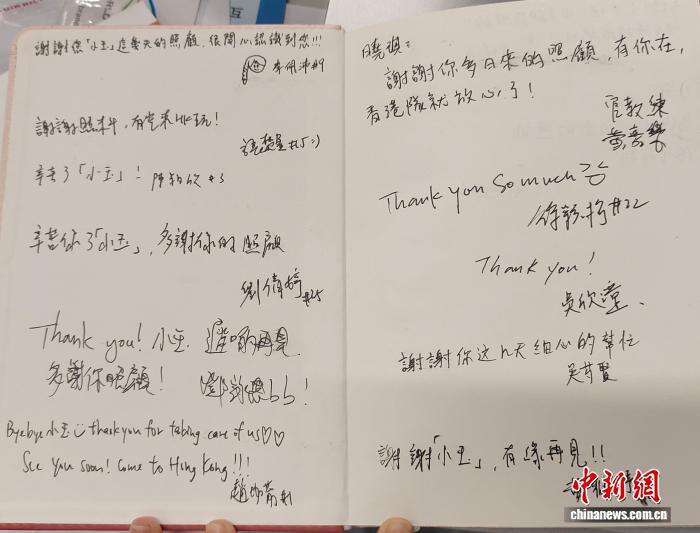 謝謝您「小玉」這幾天的照顧,很開心認識到您!!!
謝謝照料,有空來HK玩!
#15 :)
辛苦了「小玉」! #3
辛苦你了「小玉」,多謝你的照顧
#25
Thank you! 小玉 遲啲再見
多謝你照顧!
Byebye 小玉 thank you for taking care of us♡♡
See you soon! Come to Hong Kong!!!
#1
謝謝你多日來的照顧,有你在,
香港隊就放心了!
官教練
Thank you so much
#22
Thank you!
吳欣
謝謝你这几天细心的幫忙
謝謝「小玉」,有緣再見!!
中新网
chinanews.com